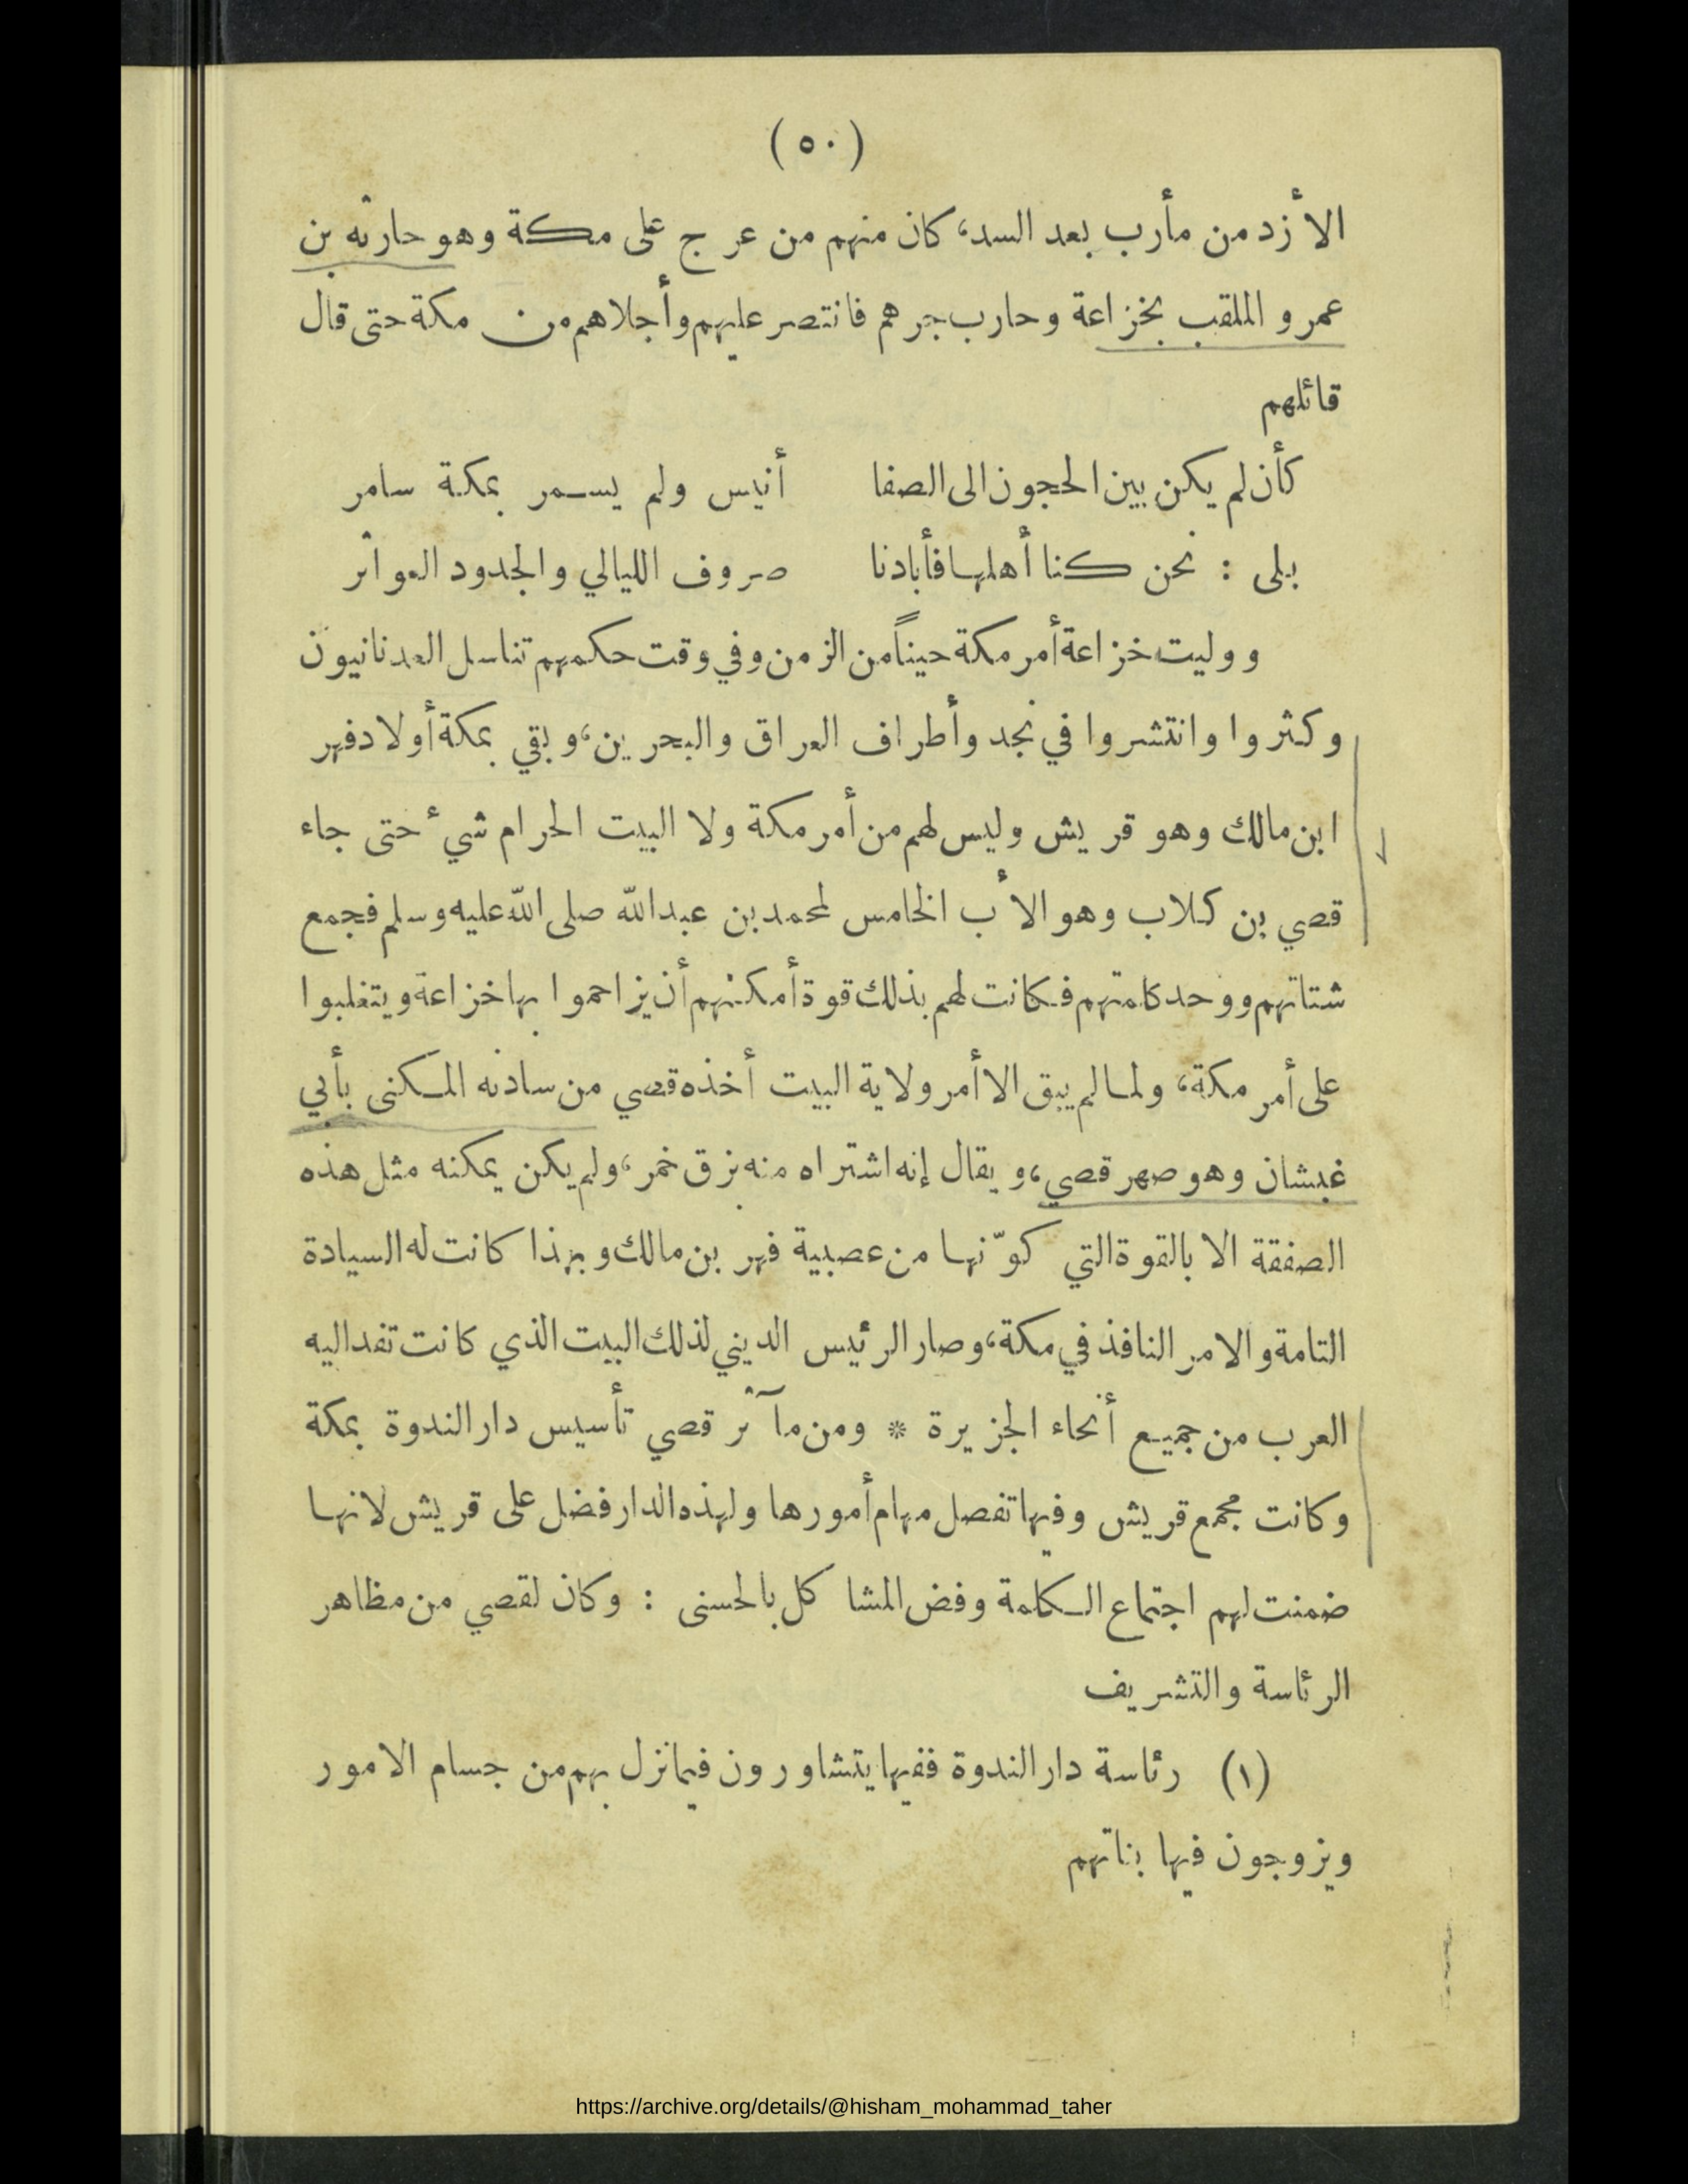 (٥٠)
الأزد من مأرب بعد السد، كان منهم من عرج على مكة وهو حارثه بن
عمرو الملقب بخزاعة وحارب جرهم فانتصر عليهم وأجلاهم من مكة حتى قال
قائلهم
كأن لم يكن بين الحجون الى الصفا أنيس ولم يسمر بمكة سامر
بلى : نحن كنا أهلها فأبادنا صروف الليالي والجدود العواثر
ووليت خزاعة أمر مكة حيناً من الزمن وفي وقت حكمهم تناسل العدنانيون
وكثروا وانتشروا في نجد وأطراف العراق والبحرين، وبقي بمكة أولاد فهر
ابن مالك وهو قريش وليس لهم من أمر مكة ولا البيت الحرام شيء حتى جاء
قصي بن كلاب وهو الأب الخامس لمحمد بن عبد الله صلى الله عليه وسلم فجمع
شتاتهم ووحد كلمتهم فكانت لهم بذلك قوة أمكنهم أن يزاحموا بها خزاعة ويتغلبوا
على أمر مكة، ولما لم يبق الا أمر ولاية البيت أخذه قصي من سادنه المكنى بأبي
غبشان وهو صهر قصي، ويقال إنه اشتراه منه بزق خمر، ولم يكن يمكنه مثل هذه
الصفقة الا بالقوة التي كوّنها من عصبية فهر بن مالك وبهذا كانت له السيادة
التامة والامر النافذ في مكة، وصار الرئيس الديني لذلك البيت الذي كانت تفد اليه
العرب من جميع أنحاء الجزيرة * ومن مآثر قصي تأسيس دار الندوة بمكة
وكانت مجمع قريش وفيها تفصل مهام أمورها ولهذه الدار فضل على قريش لانها
ضمنت لهم اجتماع الكلمة وفض المشاكل بالحسنى : وكان لقصي من مظاهر
الرئاسة والتشريف
(١) رئاسة دار الندوة ففيها يتشاورون فيما نزل بهم من جسام الامور
ويزوجون فيها بناتهم
https://archive.org/details/@hisham_mohammad_taher